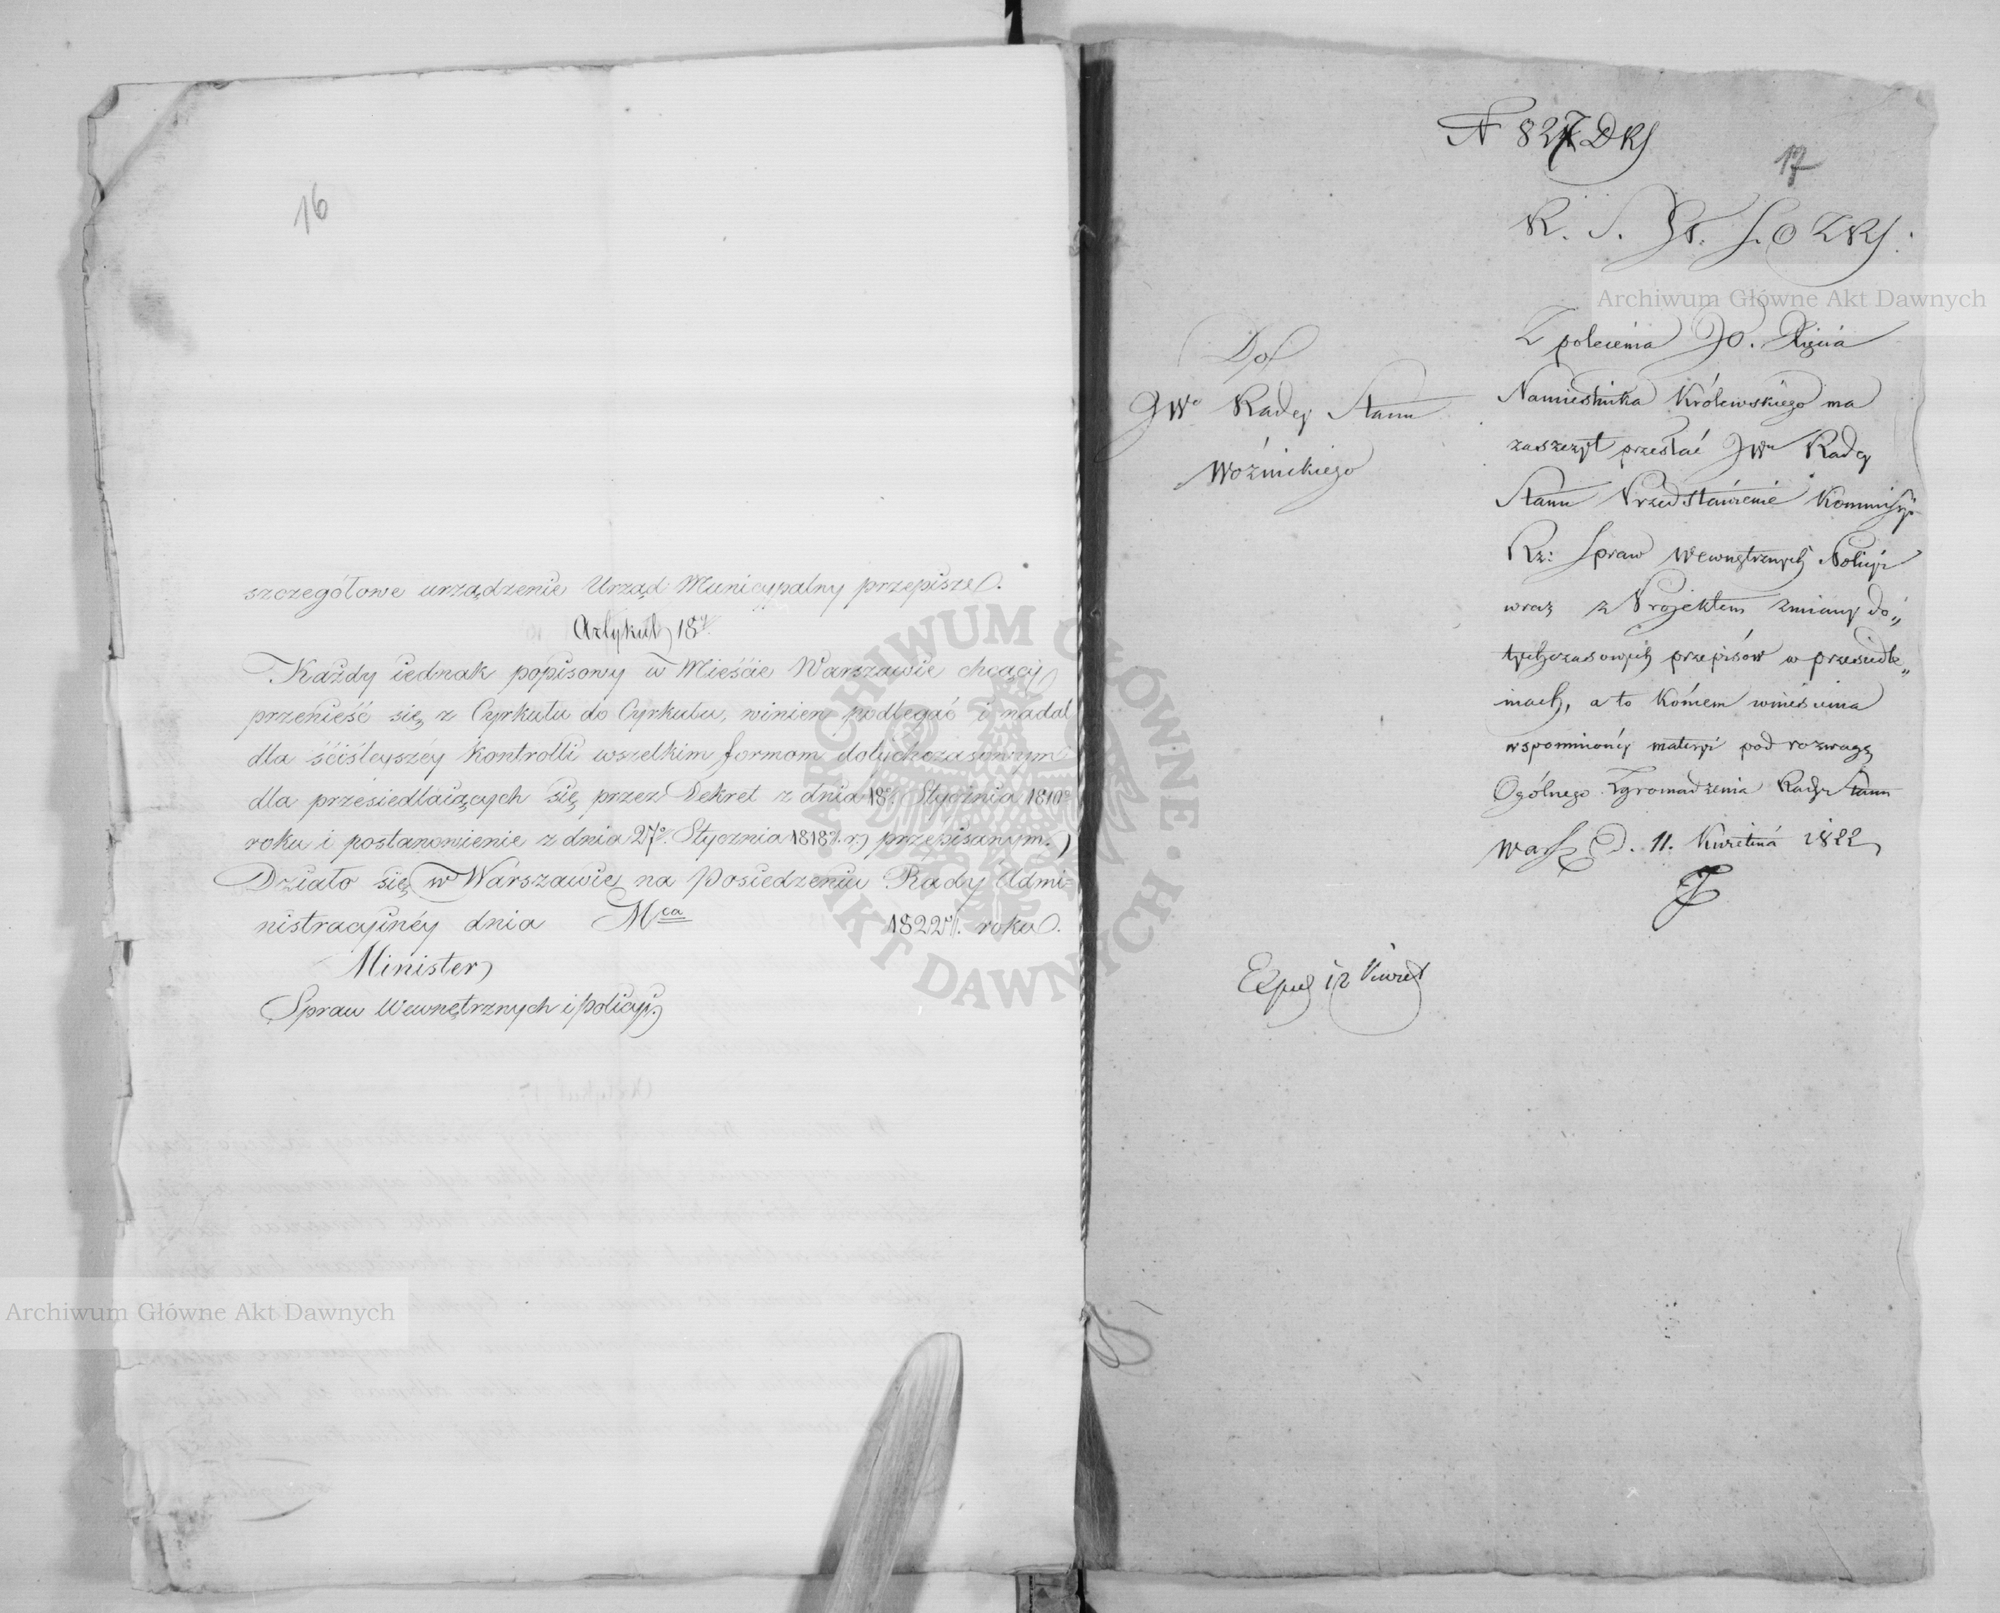 16
szczegółowe urządzenie Urząd Municypalny przepisze.
Artykuł 18ty
Każdy iednak popisowy w Mieście Warszawie chcący
przenieść się z Cyrkułu do Cyrkułu, winien podlegać i nadal
dla ściśleyszéy kontrolli wszelkim formom dotychczasowym
dla przesiedlaiących się przez Dekret z dnia 18º. Stycznia 1810º
roku i postanowienie z dnia 27º. Stycznia 1818. r. przepisanym.
Działo się w Warszawie na Posiedzeniu Rady Admi=
nistracyinéy dnia Mca 1822. roku.
Minister
Spraw Wewnętrznych i Policyi.
N 827 DRS
17
R. S. St. S. O ZRS.
Do
JWo Radcy Stanu
Woźnickiego
Z polecenia JO. Xięcia
Namiestnika Królewskiego ma
zaszczyt przesłać JWu Radcy
Stanu Przedstawienie Kommissyi
Rz: Spraw Wewnętrznych Policyi
wraz z Projektem zmiany do„
tychczasowych przepisów w przesiedle„
niach, a to końcem wniesienia
wspomnionéy materyi pod rozwagę
Ogólnego Zgromadzenia Rady Stanu
Warsz. d. 11. Kwietnia 1822
Exped 12 Kwiet
Archiwum Główne Akt Dawnych
Archiwum Główne Akt Dawnych
ARCHIWUM GŁÓWNE AKT DAWNYCH